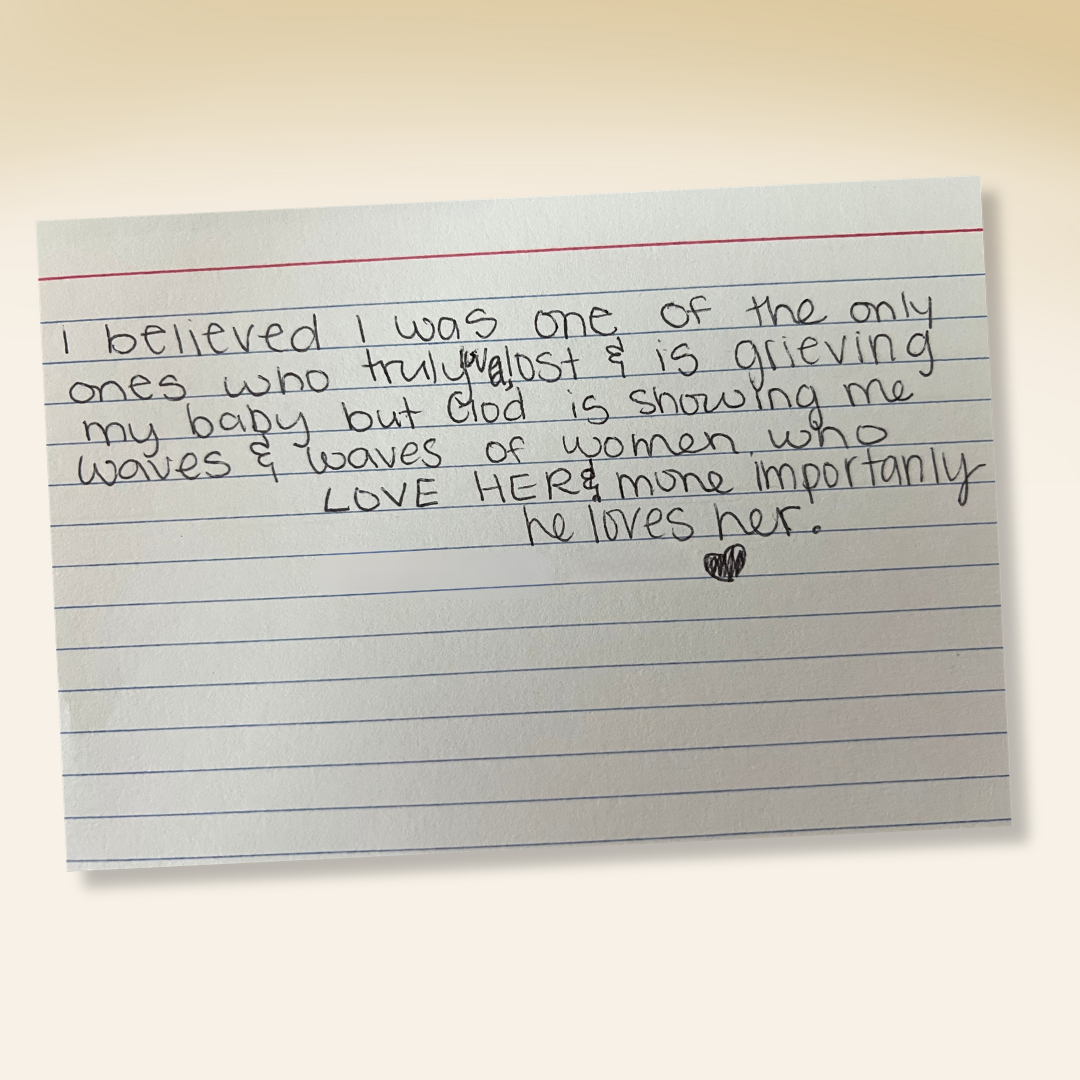 I believed I was one of the only
ones who truly lost & is grieving
my baby but God is showing me
waves & waves of women who
LOVE HER & more importanly
he loves her.